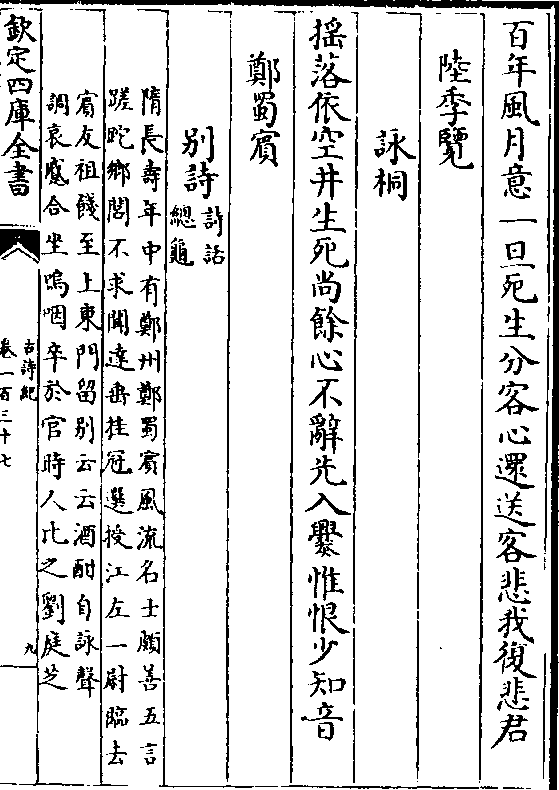 百年風月意一旦死生分客心還送客悲我復悲君
陸季覽
詠桐
搖落依空井生死尚餘心不辭先入爨惟恨少知音
鄭蜀賓
別詩
詩話
總龜
隋長壽年中有鄭州鄭蜀賓風流名士頗善五言
蹉跎鄉閭不求聞達垂挂冠選授江左一尉臨去
賓友祖餞至上東門留别云云酒酣自詠聲
調哀感合坐嗚咽卒於官時人比之劉庭芝
欽定四庫全書
古詩紀
卷一百三十七
九